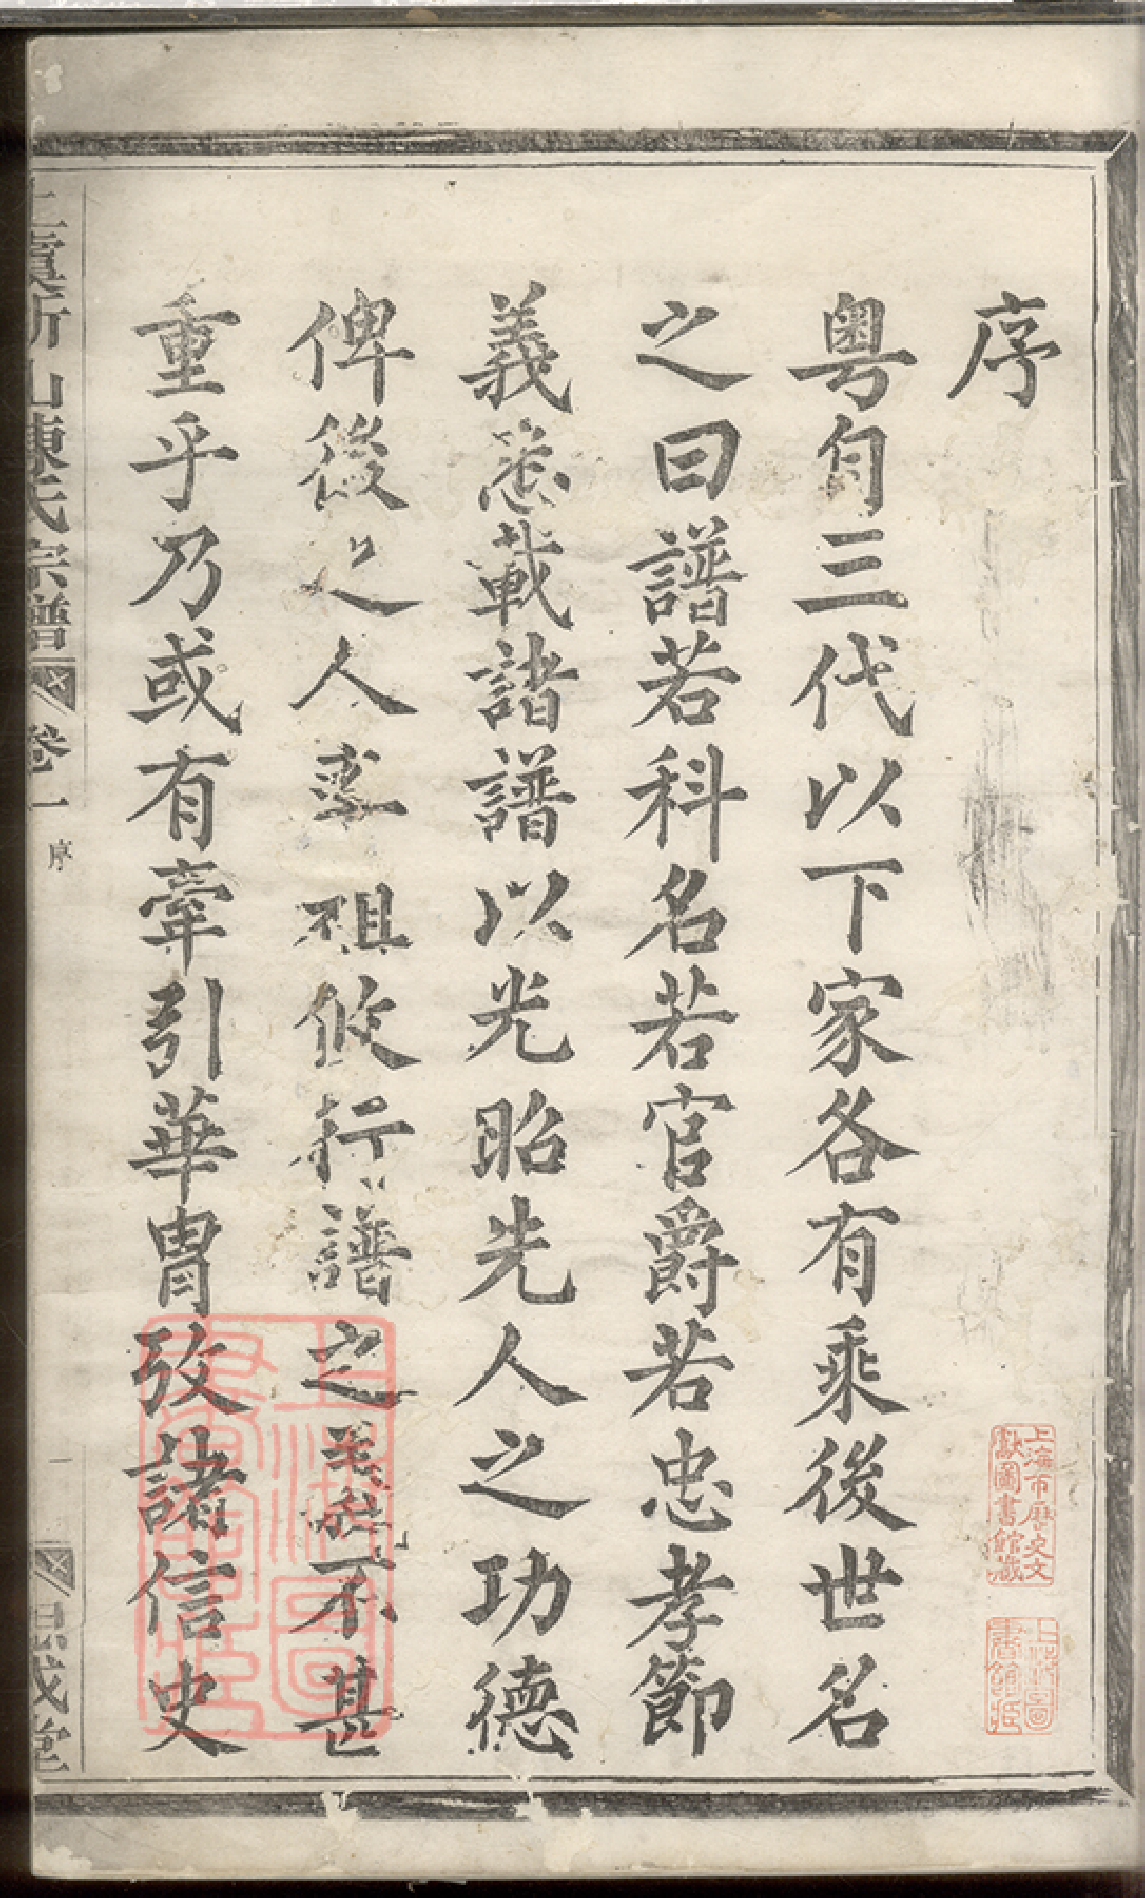 序
粤自三代以下家各有乘後世名
之曰譜若科名若官爵若忠孝節
義悉載諸譜以光昭先人之功德
俾後之人率祖攸行譜之義不甚
重乎乃或有牽引華胄攷諸信史
虞新山陳氏宗譜
卷一
序
一
上海市歷史文
獻圖書館藏
上海圖
書館藏
上海圖
書館藏